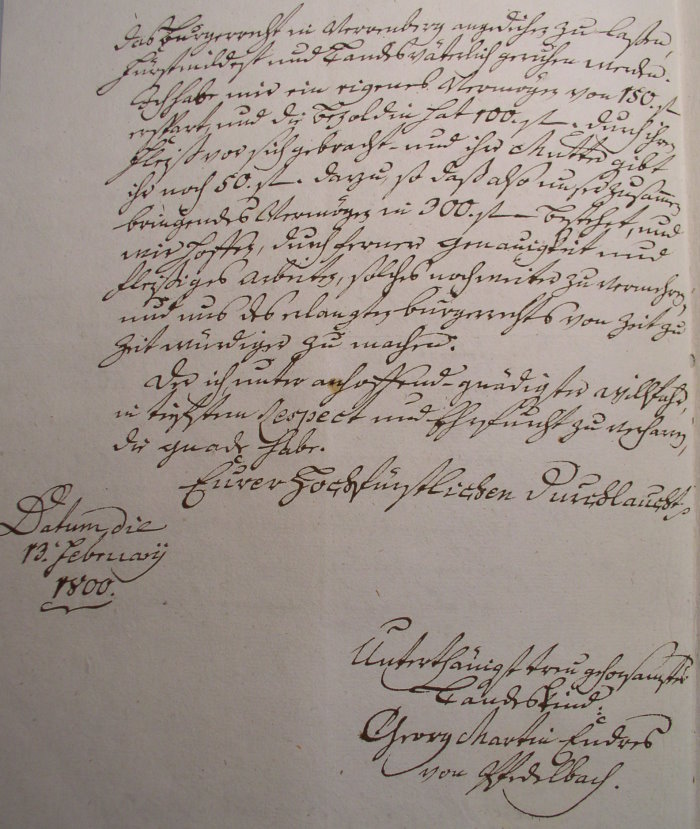 das Burgerrecht in Verrenberg angedeihen zu laßen,
Fürstmildest und Landsväterlich geruhen werden.
Ich habe mir ein eigenes Vermögen von 150. fl
erspart, und die Bezoldin hat 100. fl. durch ihren
Fleiß vor sich gebracht und ihre Mutter gibt
ihr noch 50. fl. darzu, so daß also unser zusammen
bringendes Vermögen in 300. fl bestehet, und
wir hoffen, durch ferner Genauigkeit und
fleißiges arbeiten, solches noch weiter zu vermehren,
und uns des erlangten burgerrechts von Zeit zu
Zeit würdiger zu machen.
Der ich unter anhoffend-gnädigster willfahr,
in tiefstem Respect und Ehrfurcht zu verharren,
die gnade habe.
Eurer Hochfürstlichen Durchlaucht,
Datum, die
13. February
1800.
Unterthänigst treu gehorsamster
Landeskind.
Georg Martin Endres
von Pfedelbach.